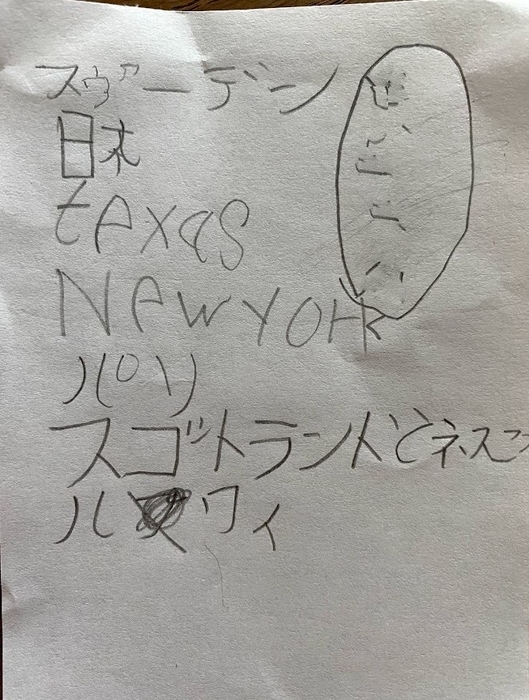 スヴァーデン
日本
texas
New york
パリ
スゴットランドとネス
ハワイ